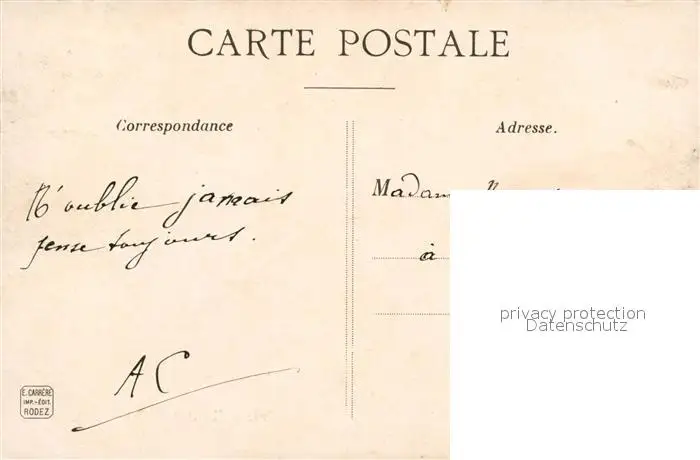 CARTE POSTALE
Correspondance
N'oublie jamais
pense toujours.
AC
E. CARRÈRE
IMP.-ÉDIT.
RODEZ
Adresse.
Madam
à
privacy protection
Datenschutz